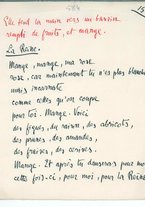 Elle tend la main vers un bassin
rempli de fruits, et mange.
La Reine.
Mange, mange, ma rose
rose, car maintenant tu n'es plus blanche
mais incarnate
comme celles qu'on coupe
pour toi. Mange. Voici
des figues, du raisin, des abricots,
des prunes, des amandes,
des fraises, des cerises.
Mange. Et après tu danseras pour moi
cette fois-ci, pour moi, pour la Reine